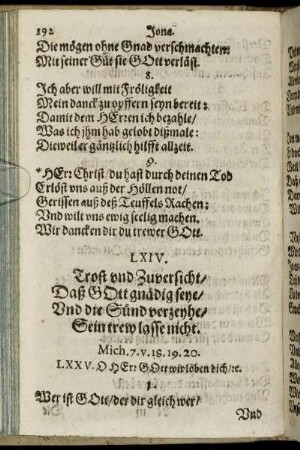 192 Jona.
Die mögen ohne Gnad verschmachten:
Mit seiner Güt sie GOtt verläst.
8.
Ich aber will mit Fröligkeit
Mein danck zu opffern seyn bereit:
Damit dem HErren ich bezahle/
Was ich jhm hab gelobt dißmale:
Dieweil er gänzlich hilfft allzeit.
9.
*HErr Christ/ du hast durch deinen Tod
Erlöst vns auß der Höllen not/
Gerissen auß deß Teuffels Rachen:
Vnd wilt vns ewig seelig machen.
Wir dancken dir du trewer GOtt.
LXIV.
Trost vnd Zuversicht/
Daß GOtt gnädig seye/
Vnd die Sünd verzeyhe/
Sein trew lasse nicht.
Mich. 7. v. 18. 19. 20.
LXXV. O HErr GOtt wir loben dich/ ꝛc.
1.
Wer ist GOtt/ der dir gleich wer/
Vnd